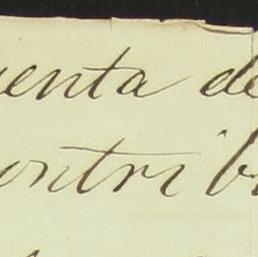 uenta de
ontrib